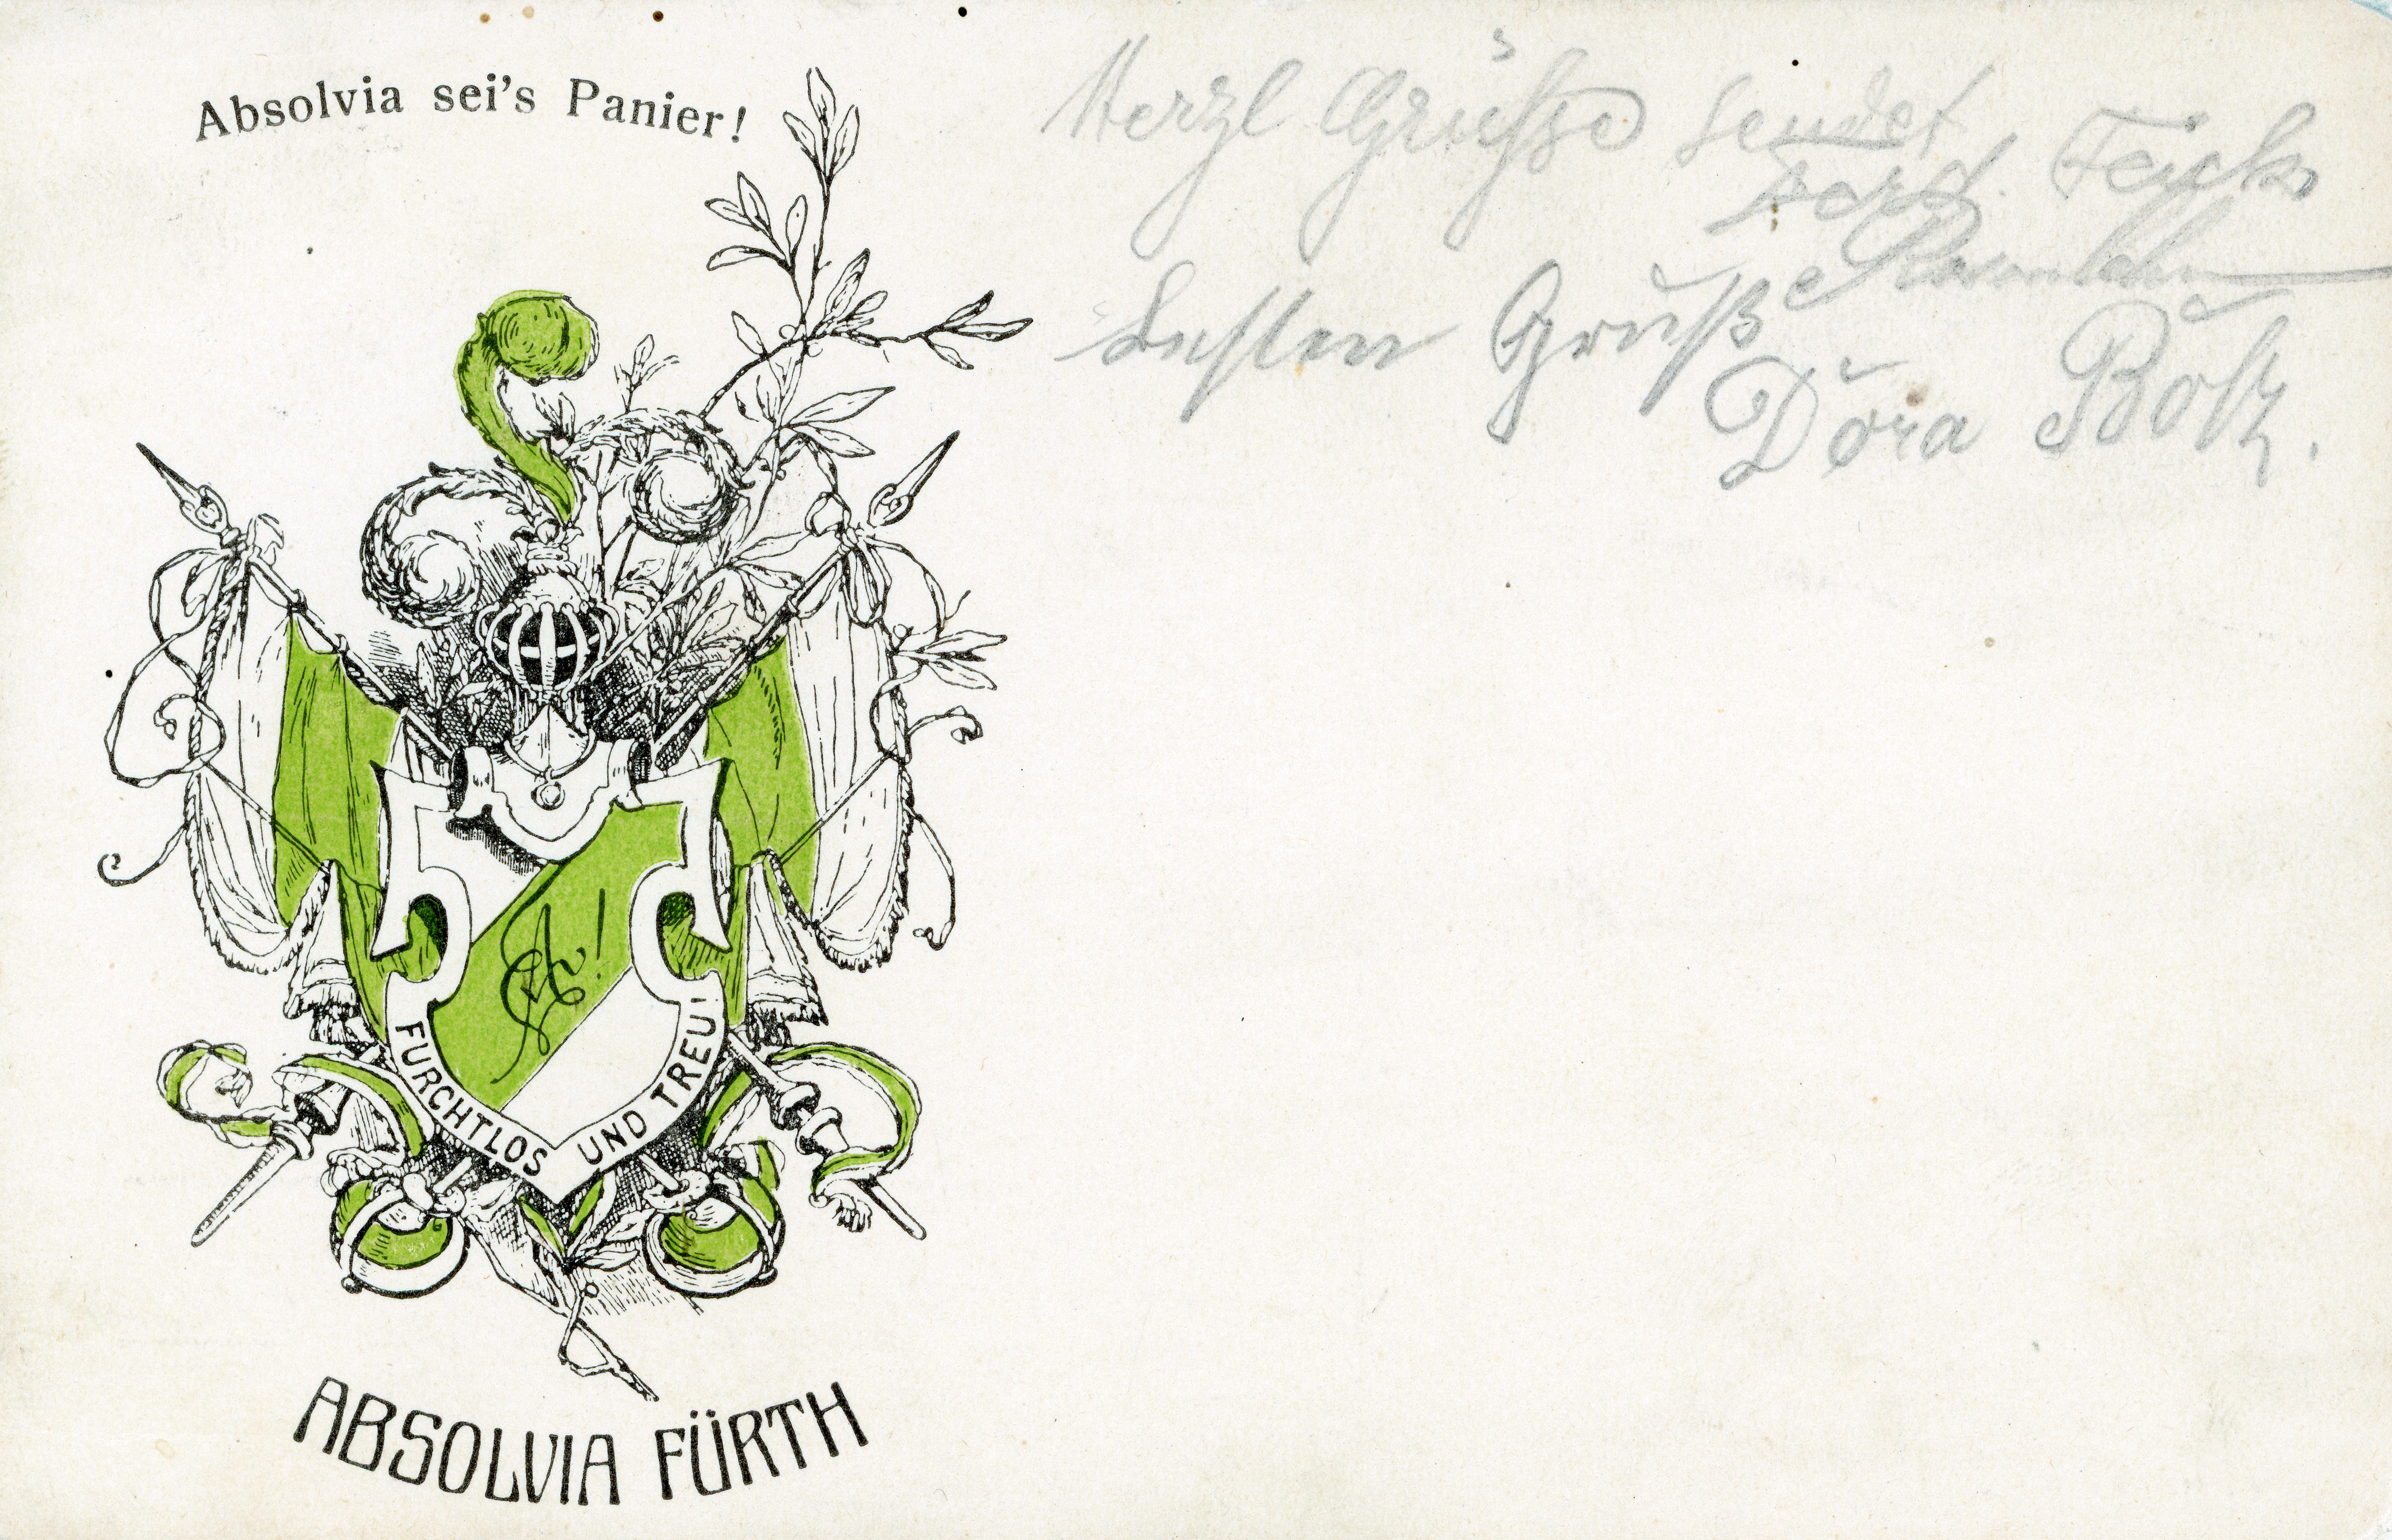 Absolvia sei's Panier!
Herzl Grüsse sendet
Ferd.
Besten Gruß
Dora
A!
FURCHTLOS UND TREU!
ABSOLVIA FÜRTH